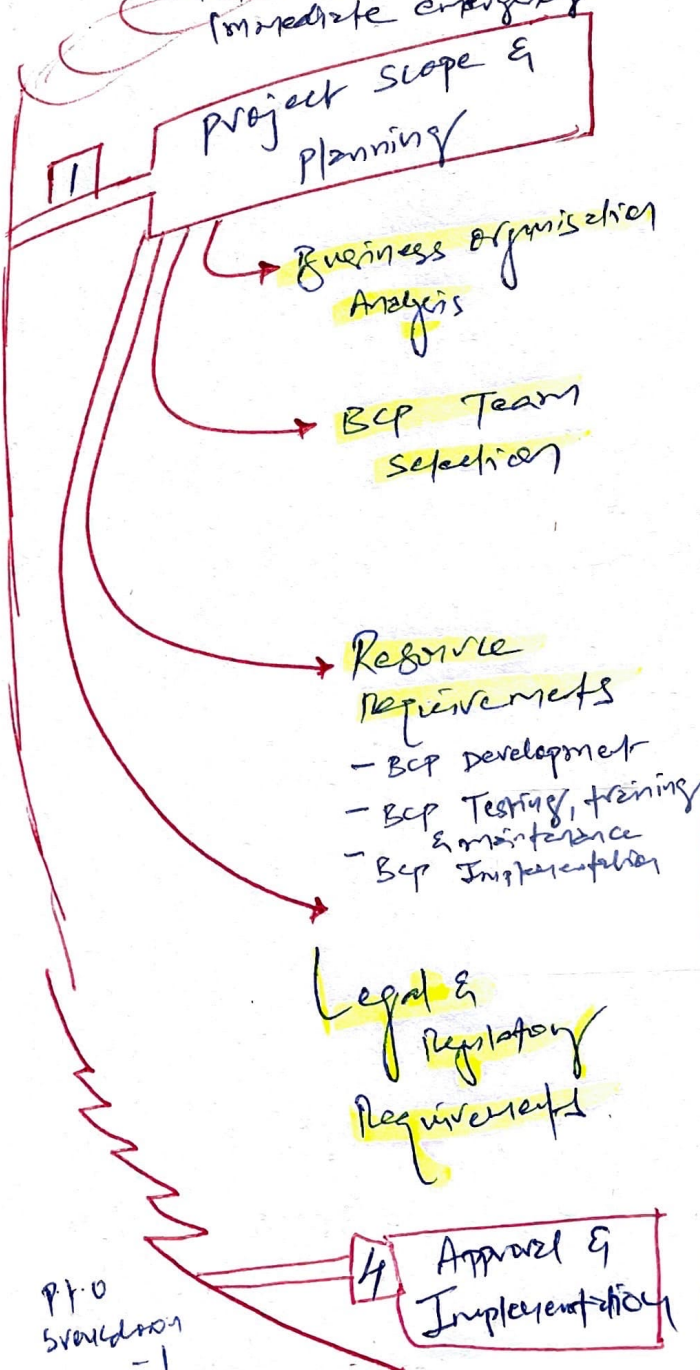 Immediate emergency
Project Scope &
Planning
1
Business Organisation
Analysis
BCP Team
Selection
Resource
Requirements
- BCP Development
- BCP Testing, training
& maintenance
- BCP Implementation
Legal &
Regulatory
Requirements.
4
Approval &
Implementation
P.T.O
- 1